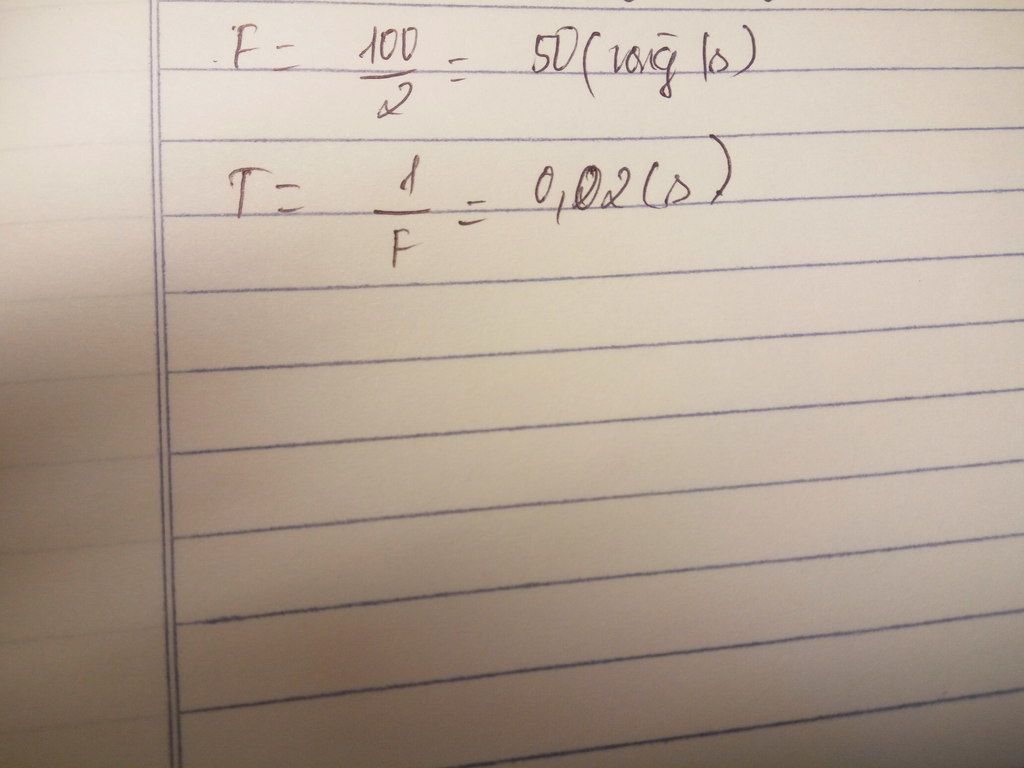 F = 100/2 = 50 (vòng/s)
T = 1/F = 0,02 (s)